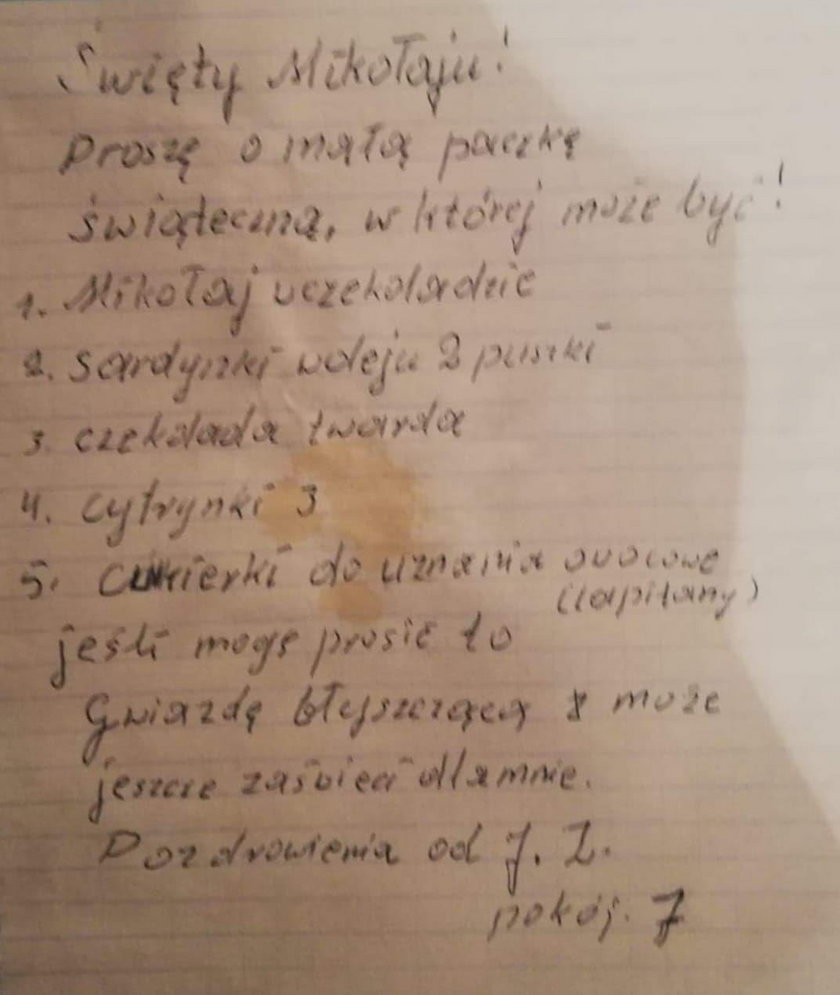 Święty Mikołaju!
Proszę o małą paczkę
świąteczną, w której może być!
1. Mikołaj wczekoladzie
2. Sardynki woleju 2 puszki
3. czekolada twarda
4. Cytrynki 3
5. Cukierki do uznania owocowe
(lapitany)
jeśli mogę prosić to
Gwiazdę błyszczącą może
jeszcze zaświeci dlamnie.
Pozdrowienia od J. Z.
pokój. 7